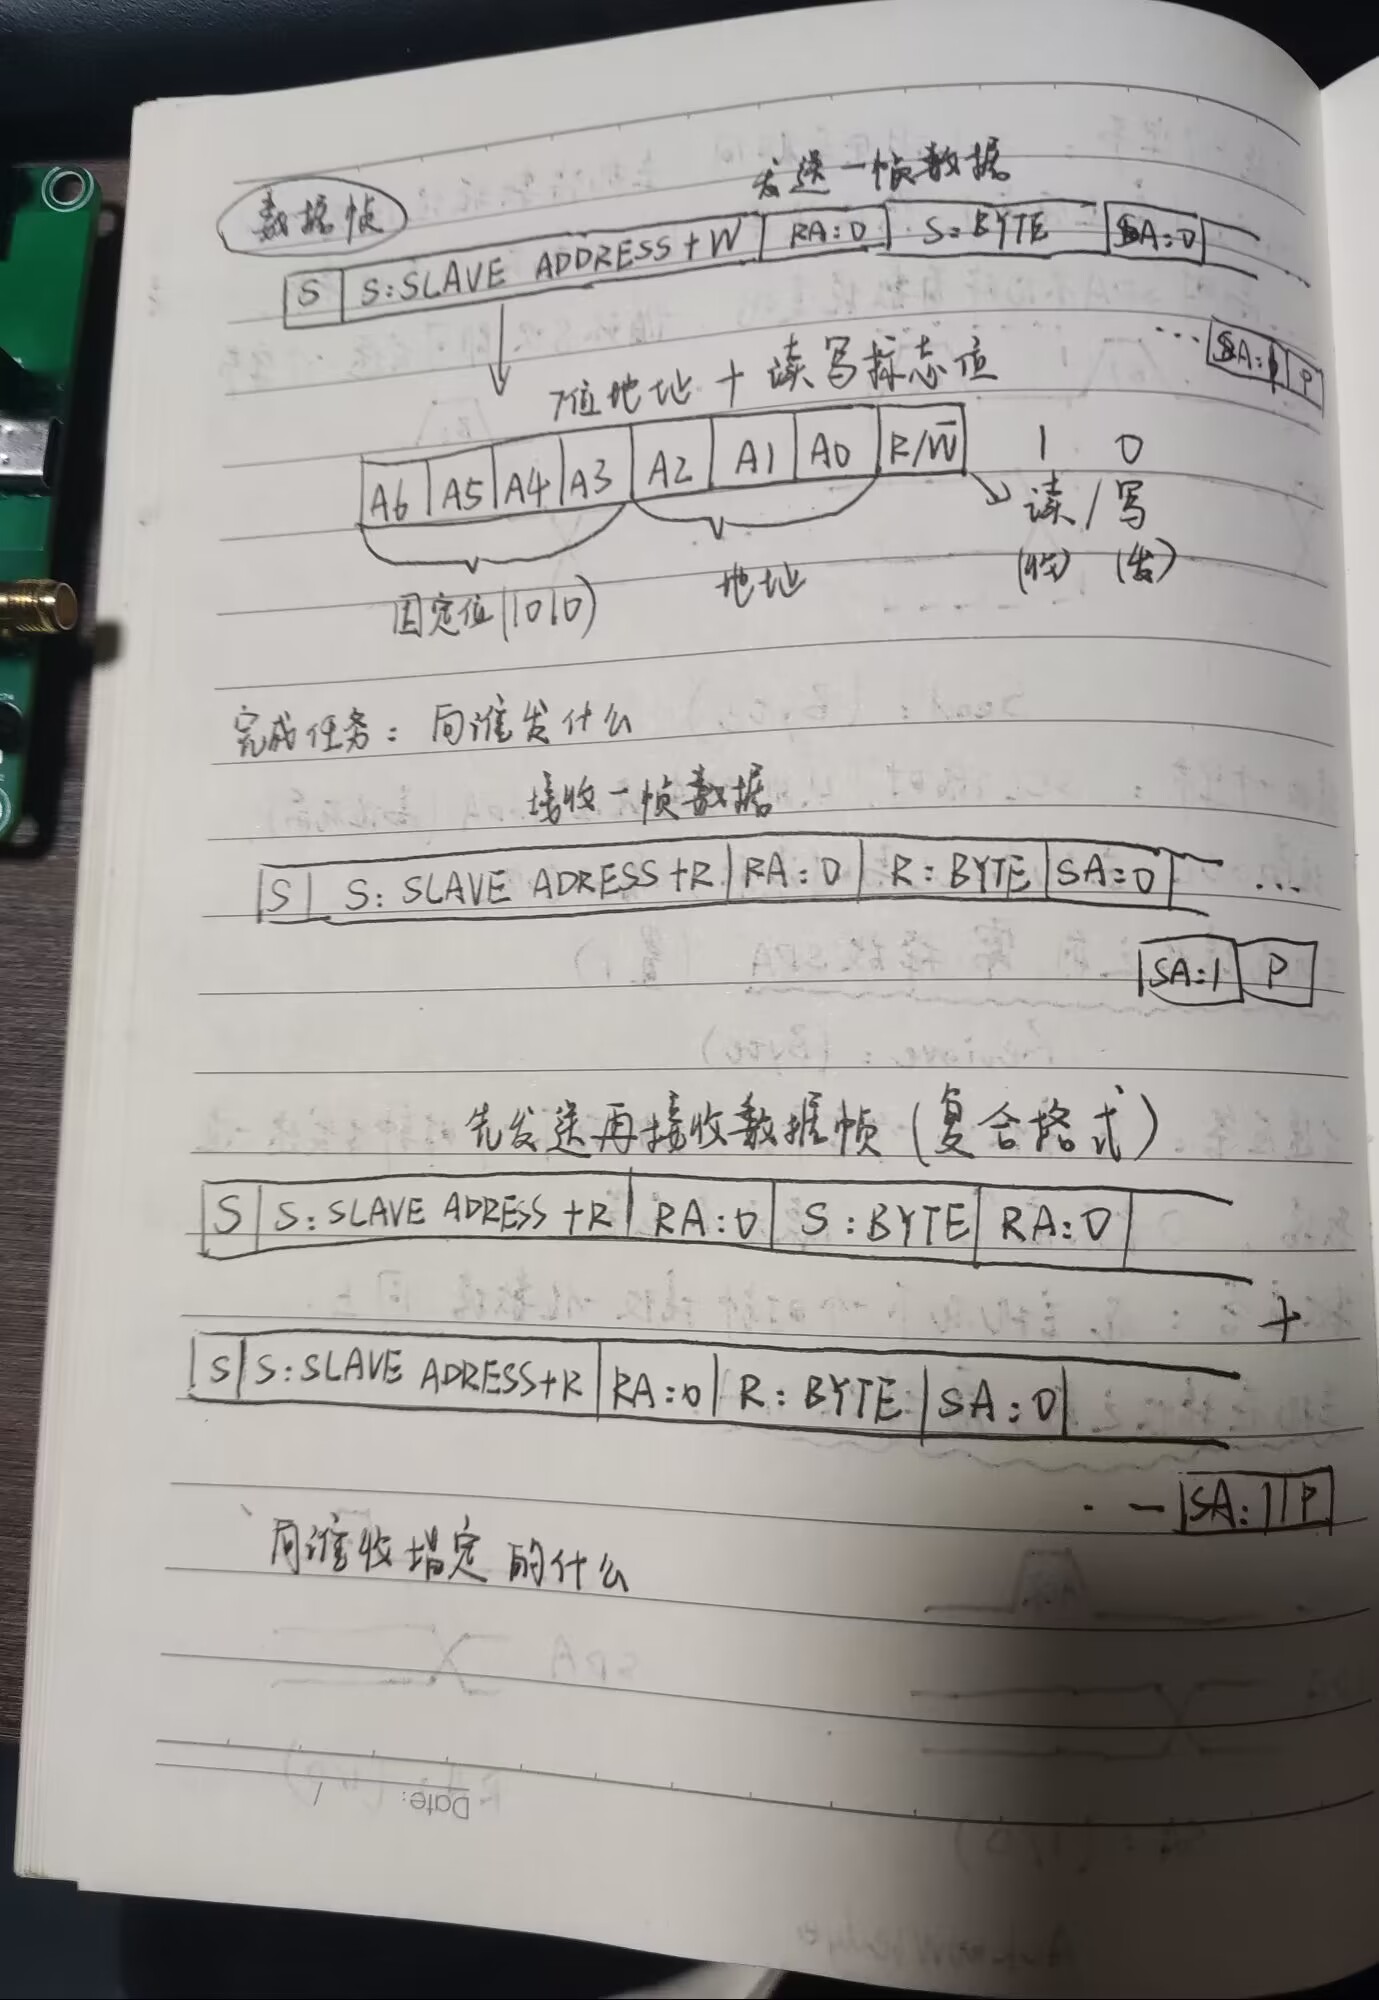 发送一帧数据
数据帧
S S:SLAVE ADDRESS+W RA:0 S:BYTE SA:0
... SA:1 P
7位地址 + 读写标志位
A6 A5 A4 A3 A2 A1 A0 R/W̅ 1 0
读/写
(收) (发)
固定值(1010) 地址
完成任务: 向谁发什么
接收一帧数据
S S: SLAVE ADRESS+R RA:0 R:BYTE SA:0 ...
SA:1 P
先发送再接收数据帧(复合格式)
S S:SLAVE ADRESS+R RA:0 S:BYTE RA:0
+
S S:SLAVE ADRESS+R RA:0 R:BYTE SA:0
SA:1 P
向谁收指定的什么
Date: